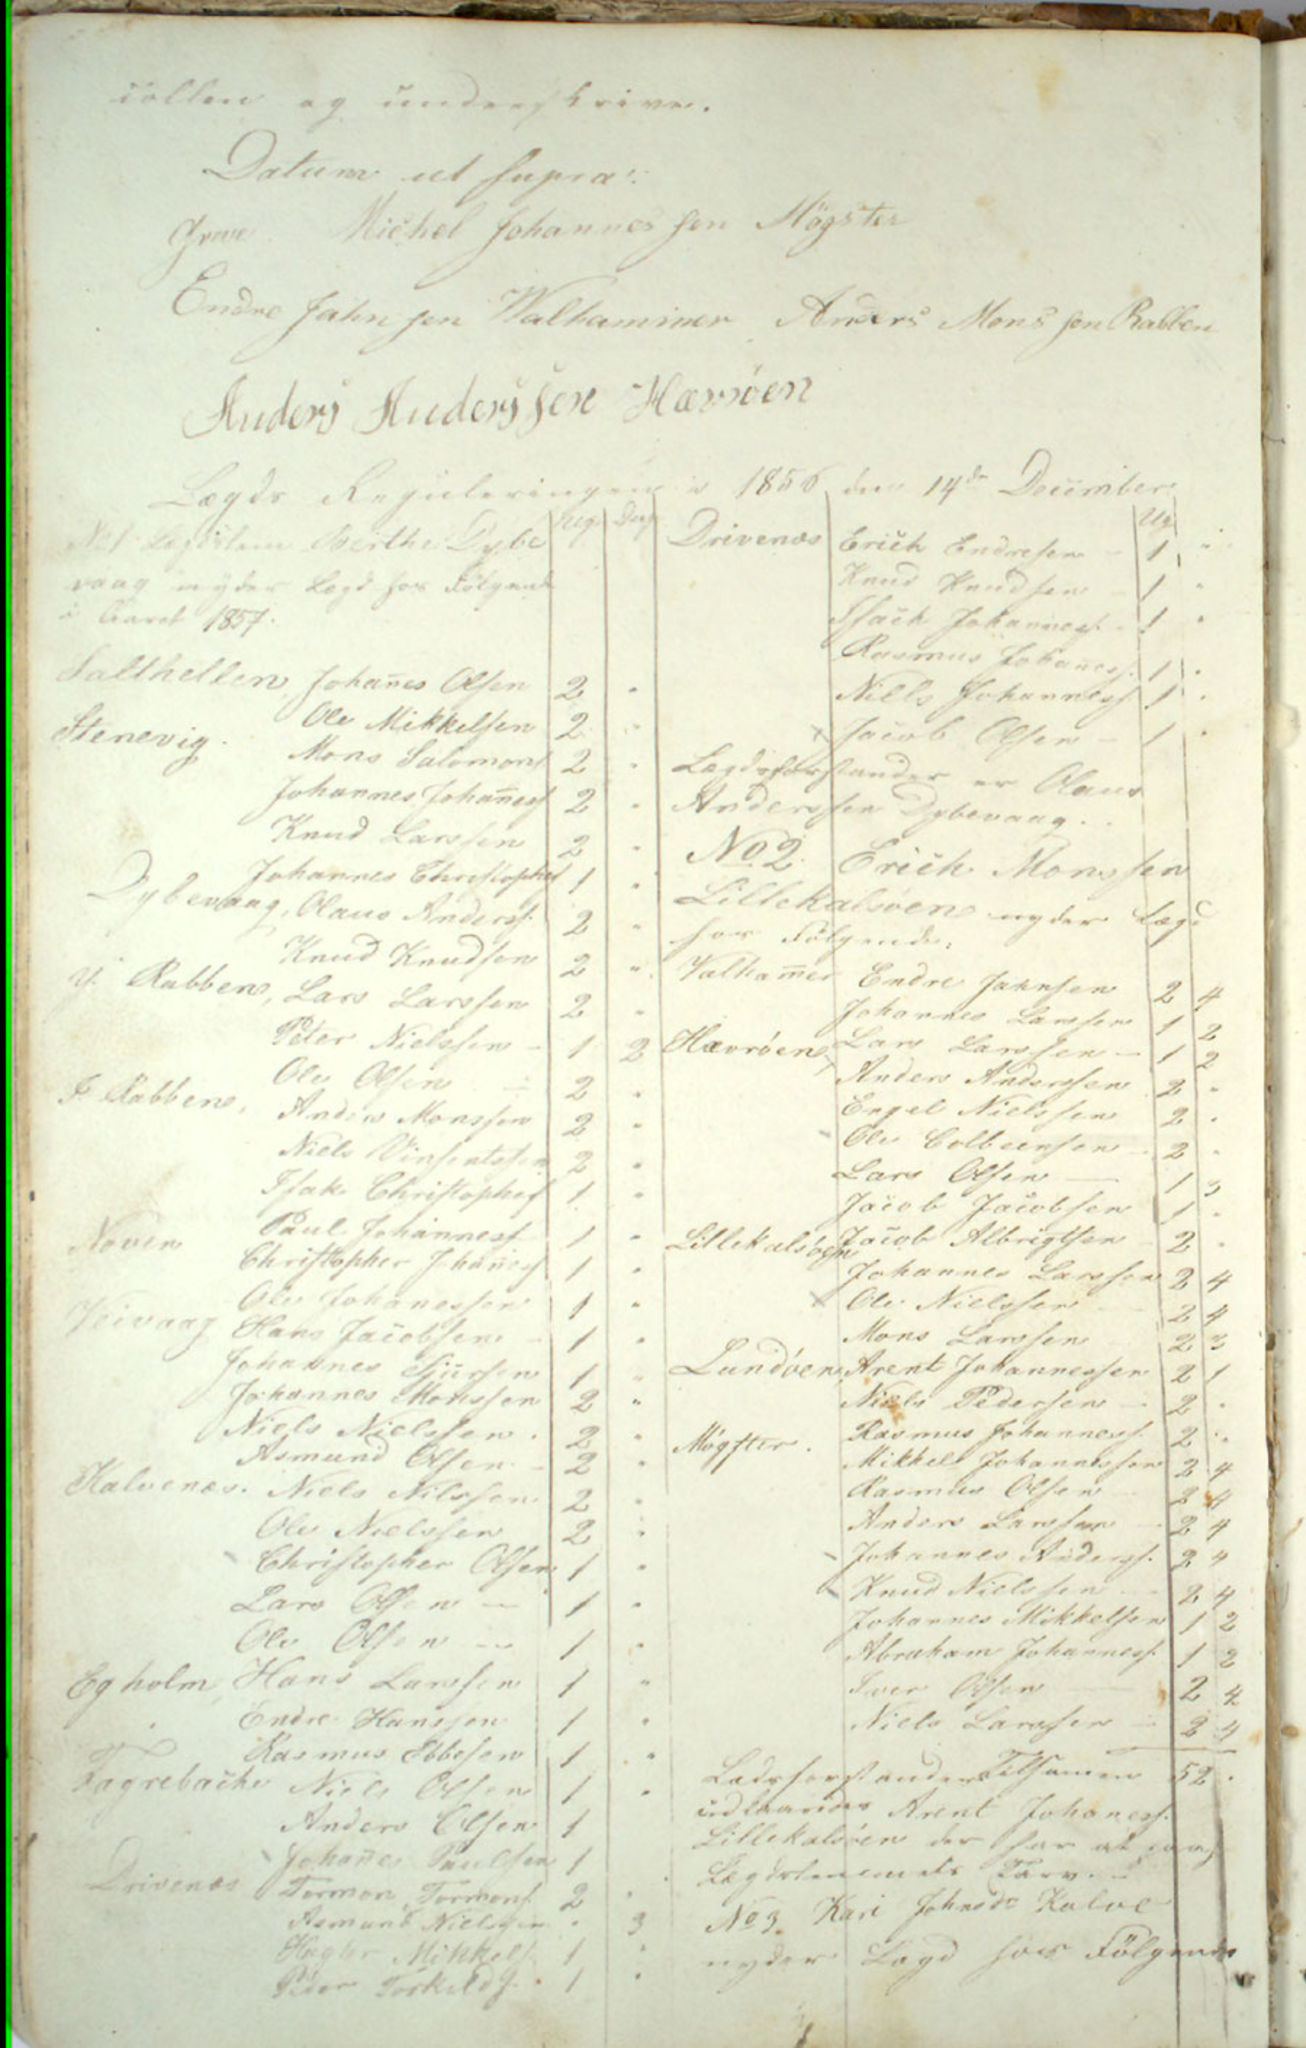 collen og underskriver.
Datum ut supra:
Greve. Michel Johannes sen Møgster
Endre Jahn sen Walhammer Anders Mons sen Rabben
Anders Anders sen Hævrøen
Lægds Reguleringen i 1856 den 14de December
Ug. Dag
No 1 Lægdslem Berthe Dybe
vaag nyder Lægd hos Følgende
i Aaret 1857.
Salthellen Johanes Olsen 2 "
Ole Mikkelsen 2 "
Stenevig. Mons Salomons 2 "
Johannes Johaness 2 "
Knud Larssen 2 "
Johannes Christophes 1 "
Dybevaag, Olaus Anders. 2 "
Knud Knudsen 2 "
Y. Rabben, Lars Larssen 2 "
Peter Nielssen - 1 2
Ole Olsen - 2 "
I. Rabben, Anders Monssen 2 "
Niels Vinsentssen 2 "
Isak Christophes 1 "
Noven Paul Johanness 1 "
Christopher Johaness 1 "
Ole Johanessen 1 "
Veivaag Hans Jacobsen - 1 "
Johannes Sjursen 1 "
Johannes Monssen 2 "
Niels Nielssen. 2 "
Asmund Olsen - 2 "
Kalvenæs. Niels Nilssen 2 "
Ole Nielssen 2 "
Christopher Olsen 1 "
Lars Olsen - 1 "
Ole Olsen - 1 "
Egholm Hans Larssen 1 "
Endre Hanssen 1 "
Rasmus Ebbesen 1 "
Fagrebacke Niels Olsen 1 "
Anders Olsen 1
Johanes Paulsen 1
Drivenæs Tormon Tormons. 2 "
Asmund Nielssen " 3
Mikkels. 1 "
Peder Torkilds. 1 "
Ug.
Drivenæs Erich Endresen - 1 "
Knud Knudsen - 1 "
Isach Johanness. - 1 "
Rasmus Johaness. 1 "
Niells Johanness 1 "
Jacob Olsen - 1 "
Lægdsforstander er Olaus
Anderssen Dybevaag.
No 2. Erich Monssen
Lillekalsøen nyder Lægd
hos Følgende.
Valhamer Endre Jahnsen 2 4
Johannes Larssen 1 2
Hævrøen, Lars Larssen - 1 2
Anders Anderssen 2 "
Engel Nielssen 2 "
Ole Colbeensen - 2 "
Lars Olsen - 1 3
Jacob Jacobsen 1 "
Lillekalsøen Jacob Albrigtsen - 2 "
Johannes Larssen 2 4
Ole Nielssen - 2 4
Mons Larssen 2 3
Lundøen, Arent Johannessen 2 1
Niels Pedersen - 2 "
Møgster. Rasmus Johanness. 2 "
Mikkel Johannessen 2 4
Rasmus Olsen 2 4
Anders Larssen - 2 4
Johannes Anderss. 2 4
Knud Nielssen - 2 4
Johannes Mikkelsen 1 2
Abraham Johanness. 1 2
Iver Olsen - 2 4
Niels Larssen - 2 4
Lædsforstander Tilsamen 52 "
Arent Johaness.
Lillekalsøen der har at
Lægdslemmets Tarv.
No 3. Kari Johnsdr Kalve
nyder Lægd hos Følgende